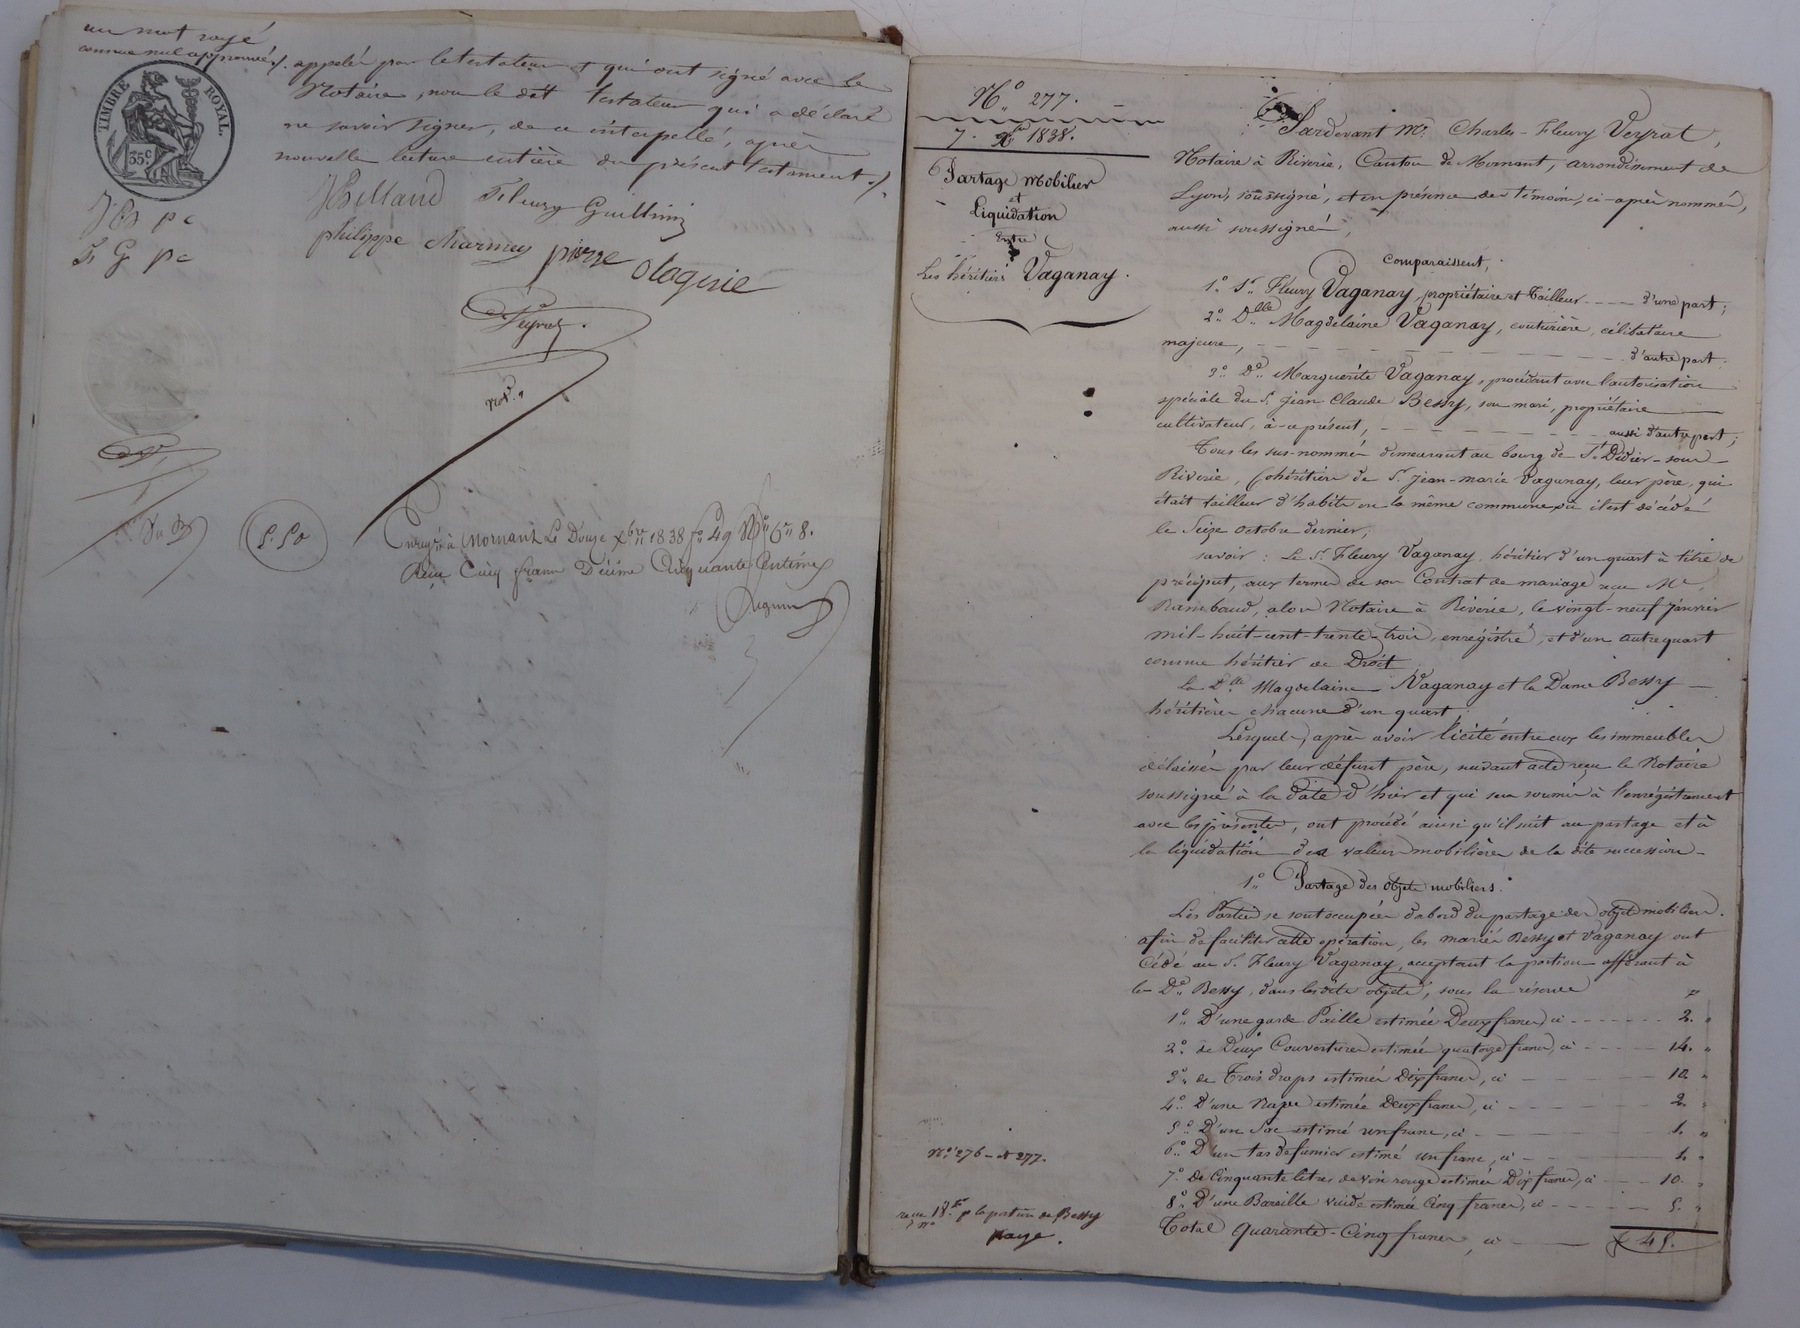 un mot rayé
comme nul approuvé /.
TIMBRE ROYAL.
35c
appelés par le testateur et qui ont signé avec le
Notaire, non le dit testateur qui a déclaré
ne savoir signer, de ce interpellé, après
nouvelle lecture entière du présent testament /.
JBilland Fleury Guillmin
philippe charmey pierre
F G pc
Veyrat
not.re
5.50
Enregé à Mornant Le Douze Xbre 1838 fo 49 Vo Cs 8.
Reçu Cinq francs Décime Cinquante Centimes
N.o 277.
7. Xbre 1838.
Partage Mobilier
et
Liquidation
Entre
Les héritiers Vaganay.
Pardevant Me. Charles-Fleury Veyrat,
Notaire à Riverie, Canton de Mornant, arrondissement de
Lyon, soussigné, et en présence des témoins, ci-après nommés,
aussi soussignés,
Comparaissent,
1.o Sr. Fleury Vaganay, propriétaire et Tailleur ---- d'une part;
2.o Dlle. Magdelaine Vaganay, couturière, célibataire
majeure, ---- d'autre part.
3.o De. Marguerite Vaganay, procédant avec l'autorisation
spéciale du Sr. Jean-Claude Bessy, son mari, propriétaire
cultivateur, à ce présent, ---- aussi d'autre part;
Tous les sus-nommés demeurant au bourg de St. Didier-sous
Riverie, Cohéritiers de Sr. Jean-marie Vaganay, leur père, qui
était tailleur d'habits en la même commune où il est décédé
le Seize Octobre dernier;
savoir: Le Sr. Fleury Vaganay, héritier d'un quart à titre de
préciput, aux termes de son Contrat de mariage reçu Me
Rambaud, alors Notaire à Riverie, le vingt-neuf Janvier
mil-huit-cent-trente-trois, enregistré, et d'un autre quart
comme héritier de Droit
La Dlle Magdelaine Vaganay et la Dame Bessy
héritières chacune d'un quart.
Lesquels, après avoir licité entre eux les immeubles
délaissés par leur défunt père, suivant acte reçu le Notaire
soussigné à la date d'hier et qui sera soumis à l'enregistrement
avec les présentes, ont procédé ainsi qu'il suit au partage et à
la liquidation des valeurs mobilières de la dite succession
1.o Partage des objets mobiliers.
Les Parties se sont occupées d'abord du partage des objets mobiliers.
afin de faciliter cette opération, les mariés Bessy et Vaganay ont
Cédé au Sr. Fleury Vaganay, acceptant la portion afférant à
la De. Bessy, dans les dits objets, sous la réserve
1.o D'une garde Paille estimée Deux francs, ci ---- 2. "
2.o de Deux Couvertures estimées quatorze francs, ci ---- 14. "
3.o de Trois draps estimés Dix francs, ci ---- 10. "
4.o D'une Nape estimée Deux francs, ci ---- 2. "
5.o D'un Sac estimé un franc, ci ---- 1. "
6.o D'un tas de fumier estimé un franc, ci ---- 1. "
7.o de Cinquante litres de vin rouge estimés Dix francs, ci ---- 10. "
8.o D'une Bareille vuide estimée Cinq francs, ci ---- 5. "
Total Quarante-Cinq francs, ci ---- 45.
No. 276 et 277.
reçu 18 f. p la portion de Bessy
paye.